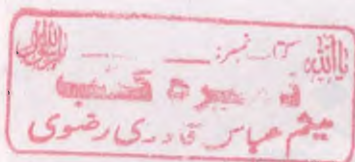 یا اللہ
کتاب نمبر:
ذخیرہ کتب
میثم عباس قادری رضوی